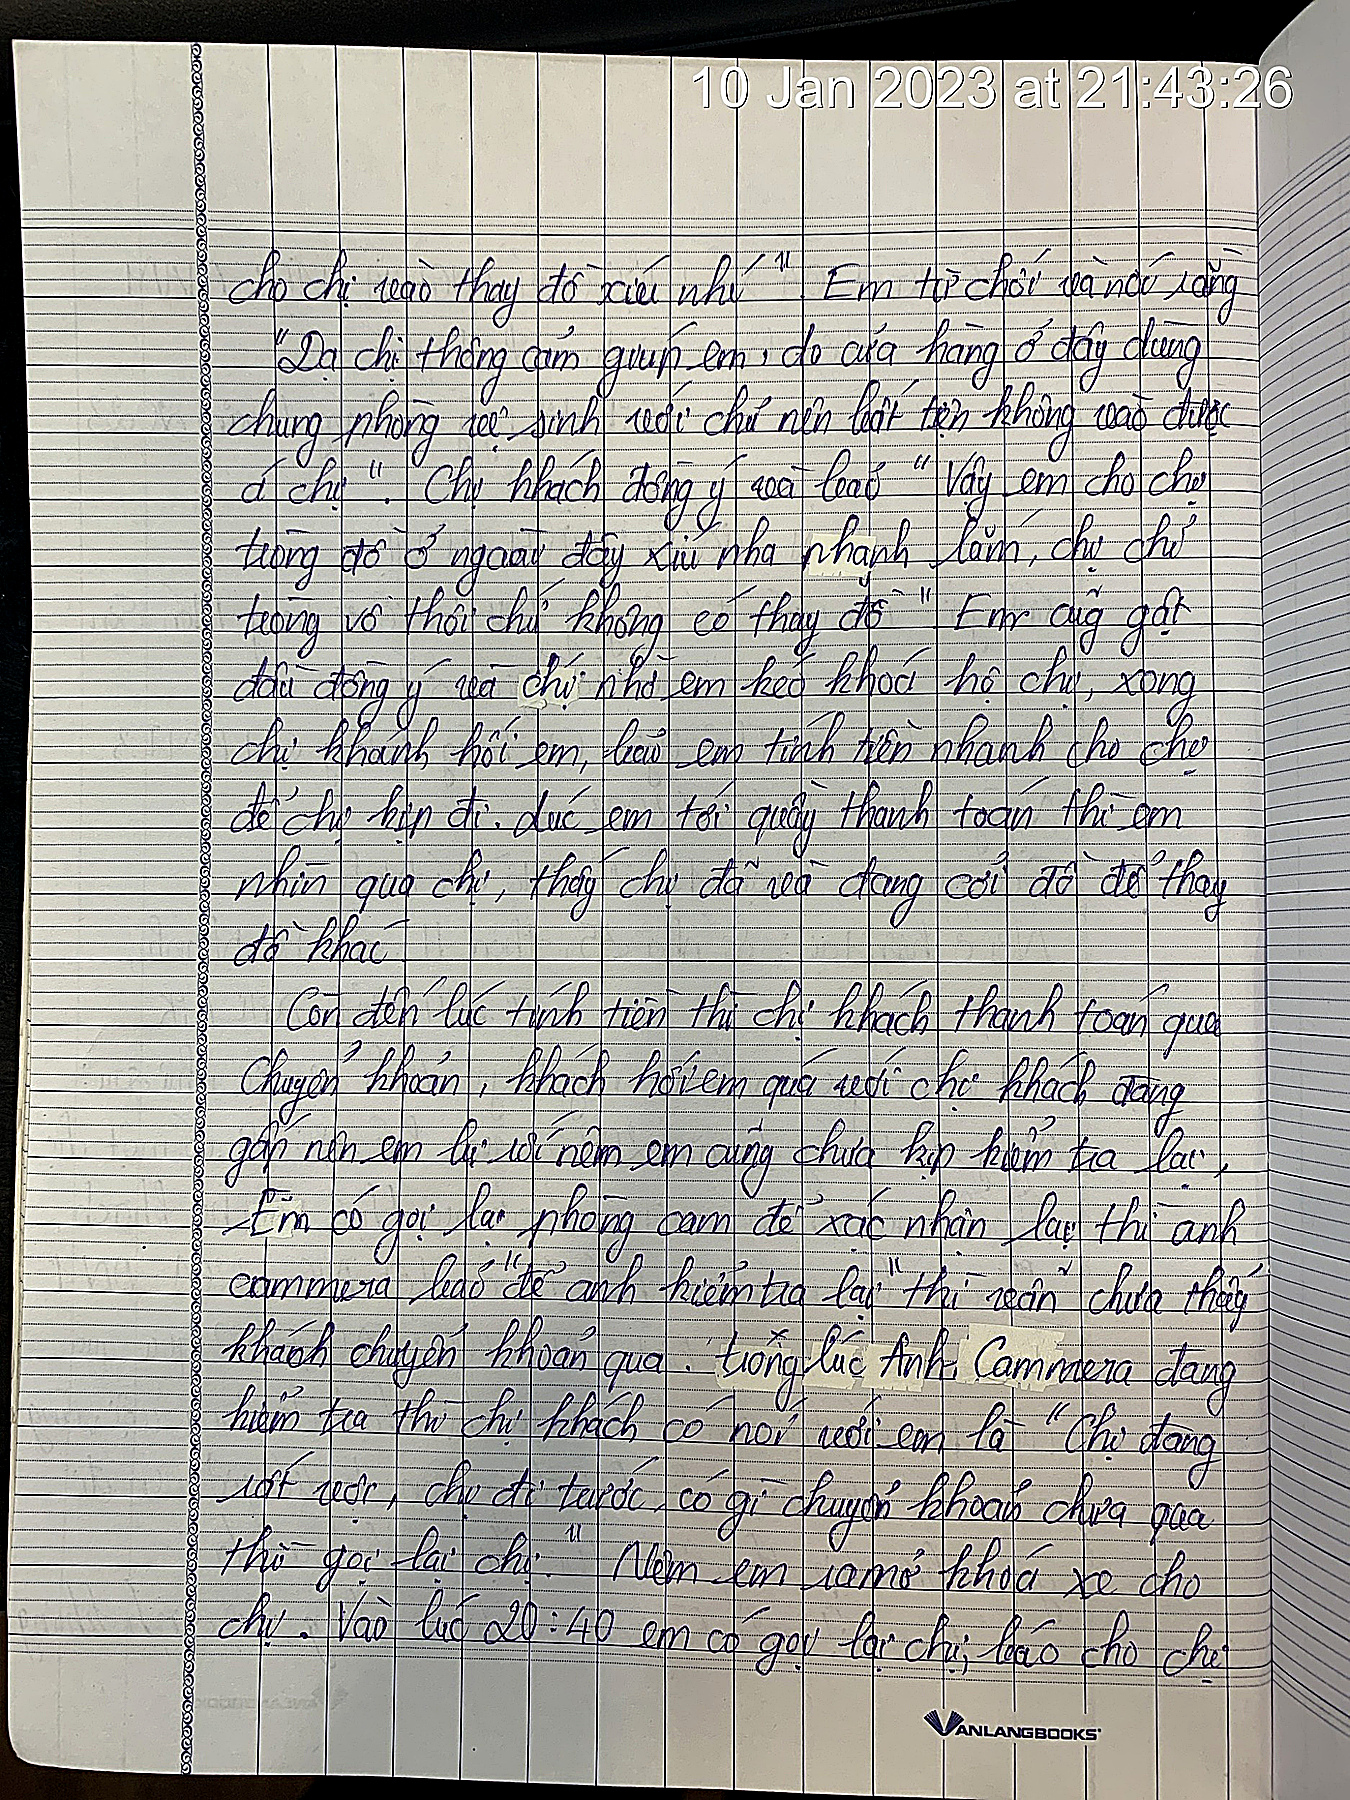 10 Jan 2023 at 21:43:26
cho chị vào thay đồ xíu nhé". Em từ chối và nói rằng
"Dạ chị thông cảm giúp em, do cửa hàng ở đây dùng
chung phòng vệ sinh với chủ nên bất tiện không vào được
á chị". Chị khách đồng ý và bảo "Vậy em cho chị
tròng đồ ở ngoài đây xíu nha nhanh lắm, chị chỉ
tròng vô thôi chứ không có thay đồ" Em cũg gật
đầu đồng ý và chị nhờ em kéo khoá hộ chị, xong
chị khánh hối em, bảo em tính tiền nhanh cho chị
để chị kịp đi. Lúc em tới quầy thanh toán thì em
nhìn qua chị, thấy chị đã và đang cởi đồ để thay
đồ khác.
Còn đến lúc tính tiền thì chị khách thanh toán qua
chuyển khoản, khách hối em quá với chị khách đang
gấp nên em bị rối nêm em cũng chưa kịp kiểm tra lại,
Em có gọi lại phòng cam để xác nhận lại thì anh
cammera bảo "để anh kiểm tra lại" thì vẫn chưa thấy
khách chuyển khoản qua. trong lúc Anh Cammera đang
kiểm tra thì chị khách có nói với em là "Chị đang
rất vội, chị đi trước, có gì chuyển khoản chưa qua
thì gọi lại chị." Nêm em ra mở khoá xe cho
chị. Vào lúc 20:40 em có gọi lại chị, báo cho chị
VANLANGBOOKS